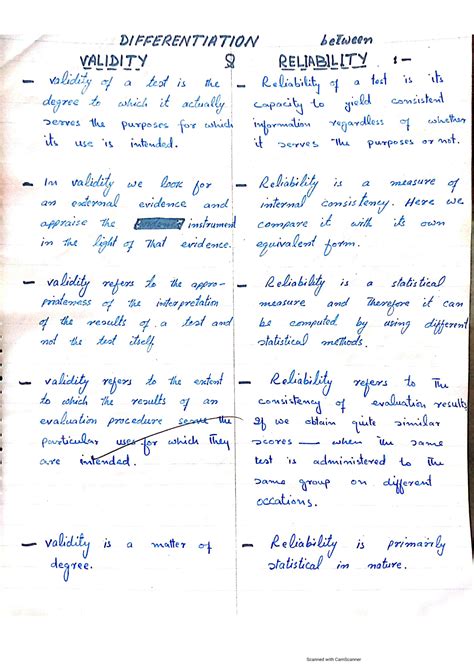 DIFFERENTIATION between
VALIDITY & RELIABILITY :-
- validity of a test is the
degree to which it actually
serves the purposes for which
its use is intended.
- Reliability of a test is its
capacity to yield consistent
information regardless of whether
it serves the purposes or not.
- In validity we look for
an external evidence and
appraise the instrument
in the light of that evidence.
- Reliability is a measure of
internal consistency. Here we
compare it with its own
equivalent form.
- validity refers to the appro-
priateness of the interpretation
of the results of a test and
not the test itself
- Reliability is a statistical
measure and therefore it can
be computed by using different
statistical methods.
- validity refers to the extent
to which the results of an
evaluation procedure serve the
particular uses for which they
are intended.
- Reliability refers to the
consistency of evaluation results
If we obtain quite similar
scores — when the same
test is administered to the
same group on different
occations.
- validity is a matter of
degree.
- Reliability is primarily
statistical in nature.
Scanned with CamScanner